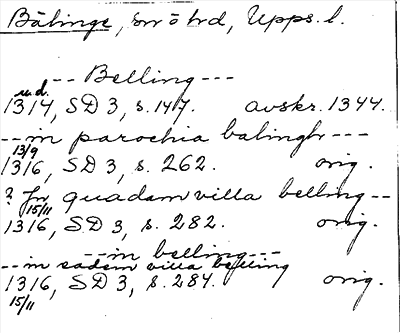 Bälinge, Snrö hd, Upps. l.
-- Belling ---
u.d.
1314, SD 3, s. 147. avskr. 1344.
-- in parochia balinghr ---
13/9
1316, SD 3, s. 262. orig.
? Jn quadam villa belling --
15/11
1316, SD 3, s. 282. orig.
-- in belling ---
-- in eadem villa belling
1316, SD 3, s. 284. orig.
15/11